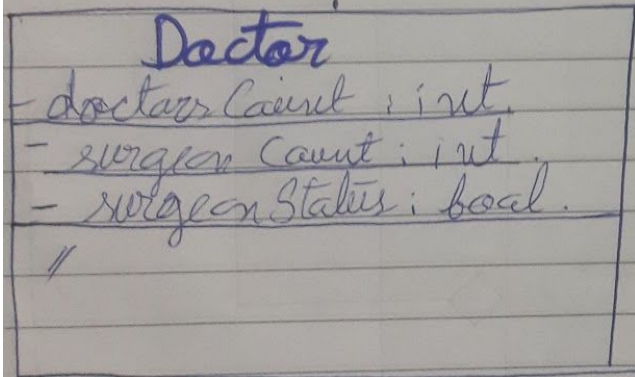 Doctor
- doctorsCount : int.
- surgeon Count : int.
- surgeonStatus : bool.
//